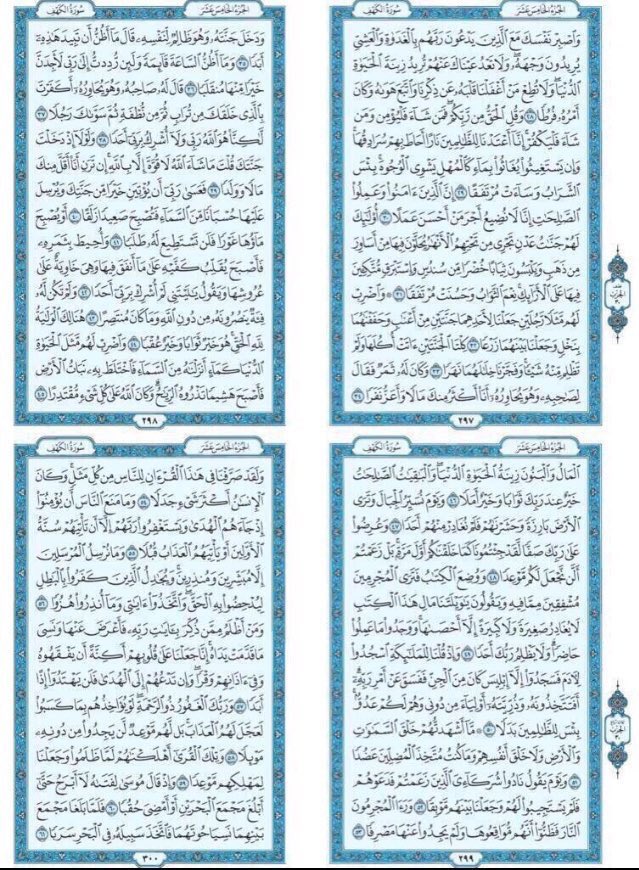 الجُزْءُ الخَامِسَ عَشَرَ سُورَةُ الكَهْفِ
وَٱصْبِرْ نَفْسَكَ مَعَ ٱلَّذِينَ يَدْعُونَ رَبَّهُم بِٱلْغَدَوٰةِ وَٱلْعَشِيِّ
يُرِيدُونَ وَجْهَهُۥ وَلَا تَعْدُ عَيْنَاكَ عَنْهُمْ تُرِيدُ زِينَةَ ٱلْحَيَوٰةِ
ٱلدُّنْيَا وَلَا تُطِعْ مَنْ أَغْفَلْنَا قَلْبَهُۥ عَن ذِكْرِنَا وَٱتَّبَعَ هَوَىٰهُ وَكَانَ
أَمْرُهُۥ فُرُطًا ٢٨ وَقُلِ ٱلْحَقُّ مِن رَّبِّكُمْ فَمَن شَآءَ فَلْيُؤْمِن وَمَن
شَآءَ فَلْيَكْفُرْ إِنَّآ أَعْتَدْنَا لِلظَّٰلِمِينَ نَارًا أَحَاطَ بِهِمْ سُرَادِقُهَا
وَإِن يَسْتَغِيثُوا۟ يُغَاثُوا۟ بِمَآءٍ كَٱلْمُهْلِ يَشْوِى ٱلْوُجُوهَ بِئْسَ
ٱلشَّرَابُ وَسَآءَتْ مُرْتَفَقًا ٢٩ إِنَّ ٱلَّذِينَ ءَامَنُوا۟ وَعَمِلُوا۟
ٱلصَّٰلِحَٰتِ إِنَّا لَا نُضِيعُ أَجْرَ مَنْ أَحْسَنَ عَمَلًا ٣٠ أُو۟لَٰٓئِكَ
لَهُمْ جَنَّٰتُ عَدْنٍ تَجْرِى مِن تَحْتِهِمُ ٱلْأَنْهَٰرُ يُحَلَّوْنَ فِيهَا مِنْ أَسَاوِرَ
مِن ذَهَبٍ وَيَلْبَسُونَ ثِيَابًا خُضْرًا مِّن سُندُسٍ وَإِسْتَبْرَقٍ مُّتَّكِـِٔينَ
فِيهَا عَلَى ٱلْأَرَآئِكِ نِعْمَ ٱلثَّوَابُ وَحَسُنَتْ مُرْتَفَقًا ٣١ ۞ وَٱضْرِبْ
لَهُم مَّثَلًا رَّجُلَيْنِ جَعَلْنَا لِأَحَدِهِمَا جَنَّتَيْنِ مِنْ أَعْنَٰبٍ وَحَفَفْنَٰهُمَا
بِنَخْلٍ وَجَعَلْنَا بَيْنَهُمَا زَرْعًا ٣٢ كِلْتَا ٱلْجَنَّتَيْنِ ءَاتَتْ أُكُلَهَا وَلَمْ
تَظْلِم مِّنْهُ شَيْـًٔا وَفَجَّرْنَا خِلَٰلَهُمَا نَهَرًا ٣٣ وَكَانَ لَهُۥ ثَمَرٌ فَقَالَ
لِصَٰحِبِهِۦ وَهُوَ يُحَاوِرُهُۥٓ أَنَا۠ أَكْثَرُ مِنكَ مَالًا وَأَعَزُّ نَفَرًا ٣٤
الحزب
٢٩٧
الجُزْءُ الخَامِسَ عَشَرَ سُورَةُ الكَهْفِ
وَدَخَلَ جَنَّتَهُۥ وَهُوَ ظَالِمٌ لِّنَفْسِهِۦ قَالَ مَآ أَظُنُّ أَن تَبِيدَ هَٰذِهِۦٓ
أَبَدًا ٣٥ وَمَآ أَظُنُّ ٱلسَّاعَةَ قَآئِمَةً وَلَئِن رُّدِدتُّ إِلَىٰ رَبِّى لَأَجِدَنَّ
خَيْرًا مِّنْهَا مُنقَلَبًا ٣٦ قَالَ لَهُۥ صَاحِبُهُۥ وَهُوَ يُحَاوِرُهُۥٓ أَكَفَرْتَ
بِٱلَّذِى خَلَقَكَ مِن تُرَابٍ ثُمَّ مِن نُّطْفَةٍ ثُمَّ سَوَّىٰكَ رَجُلًا ٣٧
لَّٰكِنَّا۠ هُوَ ٱللَّهُ رَبِّى وَلَآ أُشْرِكُ بِرَبِّىٓ أَحَدًا ٣٨ وَلَوْلَآ إِذْ دَخَلْتَ
جَنَّتَكَ قُلْتَ مَا شَآءَ ٱللَّهُ لَا قُوَّةَ إِلَّا بِٱللَّهِ إِن تَرَنِ أَنَا۠ أَقَلَّ مِنكَ
مَالًا وَوَلَدًا ٣٩ فَعَسَىٰ رَبِّىٓ أَن يُؤْتِيَنِ خَيْرًا مِّن جَنَّتِكَ وَيُرْسِلَ
عَلَيْهَا حُسْبَانًا مِّنَ ٱلسَّمَآءِ فَتُصْبِحَ صَعِيدًا زَلَقًا ٤٠ أَوْ يُصْبِحَ
مَآؤُهَا غَوْرًا فَلَن تَسْتَطِيعَ لَهُۥ طَلَبًا ٤١ وَأُحِيطَ بِثَمَرِهِۦ
فَأَصْبَحَ يُقَلِّبُ كَفَّيْهِ عَلَىٰ مَآ أَنفَقَ فِيهَا وَهِىَ خَاوِيَةٌ عَلَىٰ
عُرُوشِهَا وَيَقُولُ يَٰلَيْتَنِى لَمْ أُشْرِكْ بِرَبِّىٓ أَحَدًا ٤٢ وَلَمْ تَكُن لَّهُۥ
فِئَةٌ يَنصُرُونَهُۥ مِن دُونِ ٱللَّهِ وَمَا كَانَ مُنتَصِرًا ٤٣ هُنَالِكَ ٱلْوَلَٰيَةُ
لِلَّهِ ٱلْحَقِّ هُوَ خَيْرٌ ثَوَابًا وَخَيْرٌ عُقْبًا ٤٤ وَٱضْرِبْ لَهُم مَّثَلَ ٱلْحَيَوٰةِ
ٱلدُّنْيَا كَمَآءٍ أَنزَلْنَٰهُ مِنَ ٱلسَّمَآءِ فَٱخْتَلَطَ بِهِۦ نَبَاتُ ٱلْأَرْضِ
فَأَصْبَحَ هَشِيمًا تَذْرُوهُ ٱلرِّيَٰحُ وَكَانَ ٱللَّهُ عَلَىٰ كُلِّ شَىْءٍ مُّقْتَدِرًا ٤٥
٢٩٨
الجُزْءُ الخَامِسَ عَشَرَ سُورَةُ الكَهْفِ
ٱلْمَالُ وَٱلْبَنُونَ زِينَةُ ٱلْحَيَوٰةِ ٱلدُّنْيَا وَٱلْبَٰقِيَٰتُ ٱلصَّٰلِحَٰتُ
خَيْرٌ عِندَ رَبِّكَ ثَوَابًا وَخَيْرٌ أَمَلًا ٤٦ وَيَوْمَ نُسَيِّرُ ٱلْجِبَالَ وَتَرَى
ٱلْأَرْضَ بَارِزَةً وَحَشَرْنَٰهُمْ فَلَمْ نُغَادِرْ مِنْهُمْ أَحَدًا ٤٧ وَعُرِضُوا۟
عَلَىٰ رَبِّكَ صَفًّا لَّقَدْ جِئْتُمُونَا كَمَا خَلَقْنَٰكُمْ أَوَّلَ مَرَّةٍۭ بَلْ زَعَمْتُمْ
أَلَّن نَّجْعَلَ لَكُم مَّوْعِدًا ٤٨ وَوُضِعَ ٱلْكِتَٰبُ فَتَرَى ٱلْمُجْرِمِينَ
مُشْفِقِينَ مِمَّا فِيهِ وَيَقُولُونَ يَٰوَيْلَتَنَا مَالِ هَٰذَا ٱلْكِتَٰبِ
لَا يُغَادِرُ صَغِيرَةً وَلَا كَبِيرَةً إِلَّآ أَحْصَىٰهَا وَوَجَدُوا۟ مَا عَمِلُوا۟
حَاضِرًا وَلَا يَظْلِمُ رَبُّكَ أَحَدًا ٤٩ وَإِذْ قُلْنَا لِلْمَلَٰٓئِكَةِ ٱسْجُدُوا۟
لِـَٔادَمَ فَسَجَدُوٓا۟ إِلَّآ إِبْلِيسَ كَانَ مِنَ ٱلْجِنِّ فَفَسَقَ عَنْ أَمْرِ رَبِّهِۦٓ
أَفَتَتَّخِذُونَهُۥ وَذُرِّيَّتَهُۥٓ أَوْلِيَآءَ مِن دُونِى وَهُمْ لَكُمْ عَدُوٌّۢ
بِئْسَ لِلظَّٰلِمِينَ بَدَلًا ٥٠ ۞ مَّآ أَشْهَدتُّهُمْ خَلْقَ ٱلسَّمَٰوَٰتِ
وَٱلْأَرْضِ وَلَا خَلْقَ أَنفُسِهِمْ وَمَا كُنتُ مُتَّخِذَ ٱلْمُضِلِّينَ عَضُدًا
٥١ وَيَوْمَ يَقُولُ نَادُوا۟ شُرَكَآءِىَ ٱلَّذِينَ زَعَمْتُمْ فَدَعَوْهُمْ
فَلَمْ يَسْتَجِيبُوا۟ لَهُمْ وَجَعَلْنَا بَيْنَهُم مَّوْبِقًا ٥٢ وَرَءَا ٱلْمُجْرِمُونَ
ٱلنَّارَ فَظَنُّوٓا۟ أَنَّهُم مُّوَاقِعُوهَا وَلَمْ يَجِدُوا۟ عَنْهَا مَصْرِفًا ٥٣
الحزب
٢٩٩
الجُزْءُ الخَامِسَ عَشَرَ سُورَةُ الكَهْفِ
وَلَقَدْ صَرَّفْنَا فِى هَٰذَا ٱلْقُرْءَانِ لِلنَّاسِ مِن كُلِّ مَثَلٍ وَكَانَ
ٱلْإِنسَٰنُ أَكْثَرَ شَىْءٍ جَدَلًا ٥٤ وَمَا مَنَعَ ٱلنَّاسَ أَن يُؤْمِنُوٓا۟
إِذْ جَآءَهُمُ ٱلْهُدَىٰ وَيَسْتَغْفِرُوا۟ رَبَّهُمْ إِلَّآ أَن تَأْتِيَهُمْ سُنَّةُ
ٱلْأَوَّلِينَ أَوْ يَأْتِيَهُمُ ٱلْعَذَابُ قُبُلًا ٥٥ وَمَا نُرْسِلُ ٱلْمُرْسَلِينَ
إِلَّا مُبَشِّرِينَ وَمُنذِرِينَ وَيُجَٰدِلُ ٱلَّذِينَ كَفَرُوا۟ بِٱلْبَٰطِلِ
لِيُدْحِضُوا۟ بِهِ ٱلْحَقَّ وَٱتَّخَذُوٓا۟ ءَايَٰتِى وَمَآ أُنذِرُوا۟ هُزُوًا ٥٦
وَمَنْ أَظْلَمُ مِمَّن ذُكِّرَ بِـَٔايَٰتِ رَبِّهِۦ فَأَعْرَضَ عَنْهَا وَنَسِىَ
مَا قَدَّمَتْ يَدَاهُ إِنَّا جَعَلْنَا عَلَىٰ قُلُوبِهِمْ أَكِنَّةً أَن يَفْقَهُوهُ
وَفِىٓ ءَاذَانِهِمْ وَقْرًا وَإِن تَدْعُهُمْ إِلَى ٱلْهُدَىٰ فَلَن يَهْتَدُوٓا۟ إِذًا
أَبَدًا ٥٧ وَرَبُّكَ ٱلْغَفُورُ ذُو ٱلرَّحْمَةِ لَوْ يُؤَاخِذُهُم بِمَا كَسَبُوا۟
لَعَجَّلَ لَهُمُ ٱلْعَذَابَ بَل لَّهُم مَّوْعِدٌ لَّن يَجِدُوا۟ مِن دُونِهِۦ
مَوْئِلًا ٥٨ وَتِلْكَ ٱلْقُرَىٰٓ أَهْلَكْنَٰهُمْ لَمَّا ظَلَمُوا۟ وَجَعَلْنَا
لِمَهْلِكِهِم مَّوْعِدًا ٥٩ وَإِذْ قَالَ مُوسَىٰ لِفَتَىٰهُ لَآ أَبْرَحُ حَتَّىٰٓ
أَبْلُغَ مَجْمَعَ ٱلْبَحْرَيْنِ أَوْ أَمْضِىَ حُقُبًا ٦٠ فَلَمَّا بَلَغَا مَجْمَعَ
بَيْنِهِمَا نَسِيَا حُوتَهُمَا فَٱتَّخَذَ سَبِيلَهُۥ فِى ٱلْبَحْرِ سَرَبًا ٦١
٣٠٠